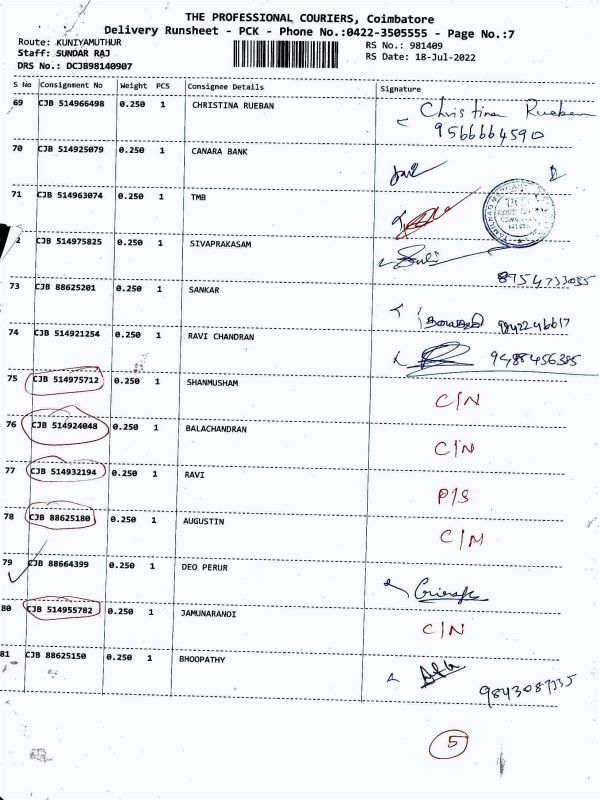 THE PROFESSIONAL COURIERS, Coimbatore
Delivery Runsheet - PCK - Phone No.:0422-3505555 - Page No.:7
Route: KUNIYAMUTHUR
Staff: SUNDAR RAJ
DRS No.: DCJB98140907
RS No.: 981409
RS Date: 18-Jul-2022
S No Consignment No Weight PCS Consignee Details Signature
69 CJB 514966498 0.250 1 CHRISTINA RUEBAN Christina Rueban
9566664590
70 CJB 514925079 0.250 1 CANARA BANK
71 CJB 514963074 0.250 1 TMB
2 CJB 514975825 0.250 1 SIVAPRAKASAM
8954733055
73 CJB 88625201 0.250 1 SANKAR 9842246617
74 CJB 514921254 0.250 1 RAVI CHANDRAN 9488456385
75 CJB 514975712 0.250 1 SHANMUSHAM C/N
76 CJB 514924048 0.250 1 BALACHANDRAN C/N
77 CJB 514932194 0.250 1 RAVI P/S
78 CJB 88625180 0.250 1 AUGUSTIN C/M
79 CJB 88664399 0.250 1 DEO PERUR
80 CJB 514955782 0.250 1 JAMUNARANOI C/N
81 CJB 88625150 0.250 1 BHOOPATHY 9843087335
5